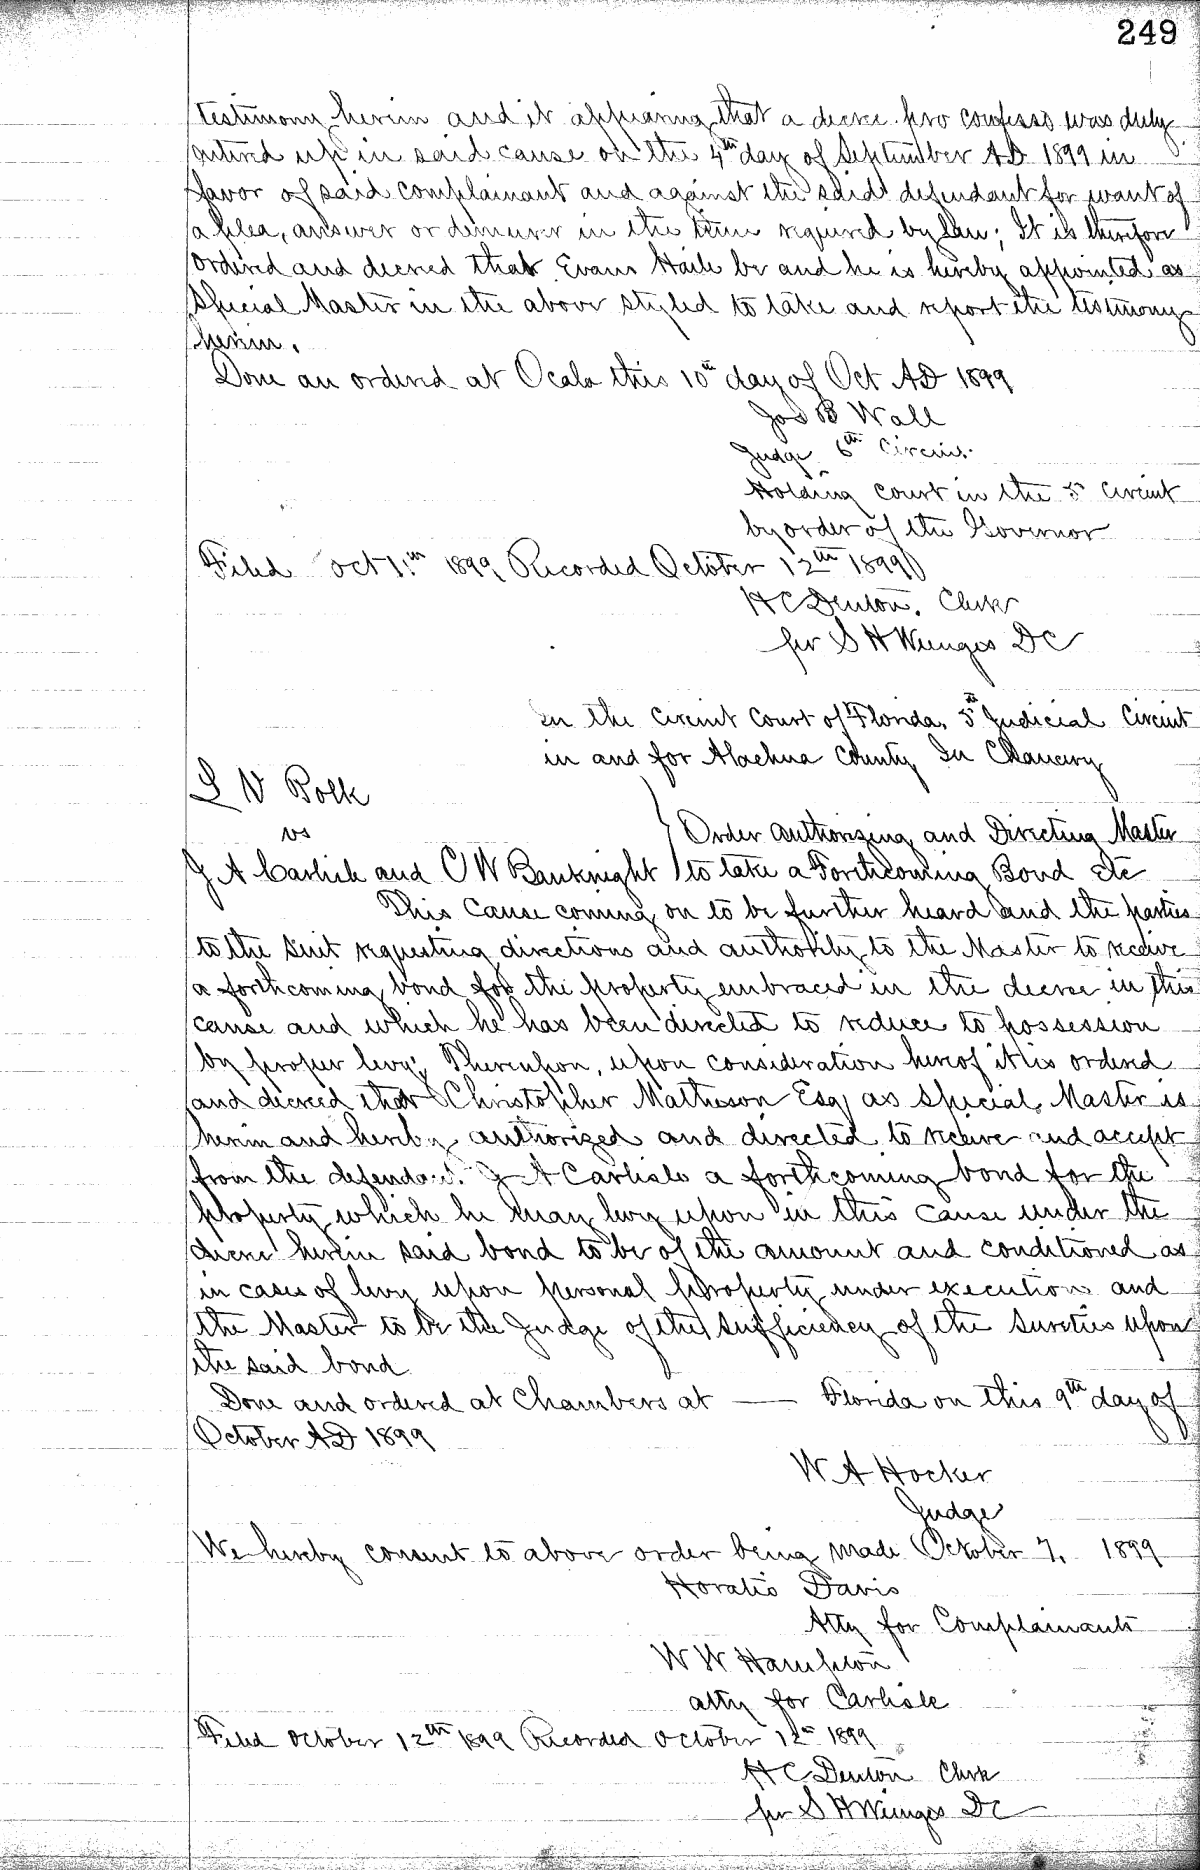 249
testimony herein and it appearing that a decree pro confesso was duly
entered up in said cause on the 4th day of September AD 1899 in
favor of said complainant and against the said defendant for want of
a plea, answer or demurrer in the time required by law; It is therefore
ordered and decreed that Evans Haile be and he is hereby appointed as
Special Master in the above styled to take and report the testimony
herein.
Done an ordered at Ocala this 10th day of Oct AD 1899
Jos B Wall
Judge 6th Circuit
Holding court in the 5th Circuit
by order of the Governor
Filed Oct 1899 Recorded October 12th 1899
H C Denton. Clerk
per S H Wienges DC
In the Circuit Court of Florida, 5th Judicial Circuit
in and for Alachua County In Chancery
L N Polk
vs
Order authorizing and Directing Master
J A Carlisle and C W Bauknight to take a Forthcoming Bond etc
This Cause coming on to be further heard and the parties
to the suit requesting directions and authority to the Master to receive
a forthcoming bond for the property embraced in the decree in this
cause and which he has been directed to reduce to possession
by proper levy; Thereupon, upon consideration hereof it is ordered
and decreed that Christopher Matheson Esq as Special Master is
herein and hereby authorized and directed to receive and accept
from the defendant J A Carlisle a forthcoming bond for the
property which he may levy upon in this cause under the
decree herein said bond to be of the amount and conditioned as
in cases of levy upon personal property under executions and
the Master to be the Judge of the sufficiency of the sureties upon
the said bond
Done and ordered at Chambers at —— Florida on this 9th day of
October AD 1899
W A Hocker
Judge
We hereby consent to above order being made October 7, 1899
Horatio Davis
Atty for Complainants
W W Hampton
atty for Carlisle
Filed October 12th 1899 Recorded October 12th 1899
H C Denton Clerk
per S H Wienges DC